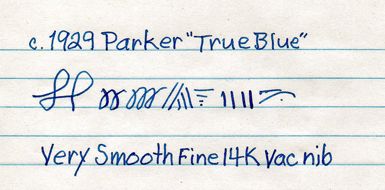 c. 1929 Parker "True Blue"
Very Smooth Fine 14K Vac nib